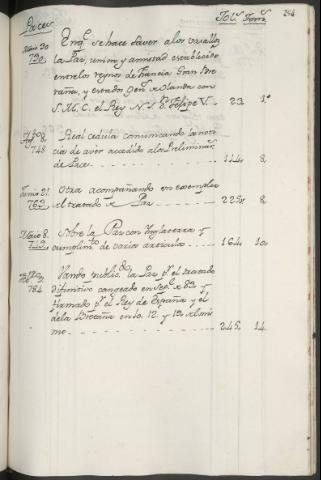 Paces
Fol.s Tom.s
284
Maio 20
720
En q.e se hace saver a los vasallos
la Paz, union y amistad establecida
entre los reynos de Francia Gran Bre
taña, y estados Gen.s de Olanda con
S. M. C. el Rey N. S. D.n Felipe V. - 23 1º
Ag.to 8
748
Real cedula comunicando la noti
cia de aver accedido a los Preliminar.s
de Paz 144 8
Junio 21
763
Otra acompañando un exemplar
del tratado de Paz 225 8
Maio 8
Sobre la Paz con Inglaterra y
cumplim.to de varios articulos 164 10
784
Vando public.do la Paz p.r el tratado
difinitivo cangeado en Sep.e de 83 y
firmado p.r el Rey de España y el
de la Bretaña en los 12 y 19 del mis
mo 245 14